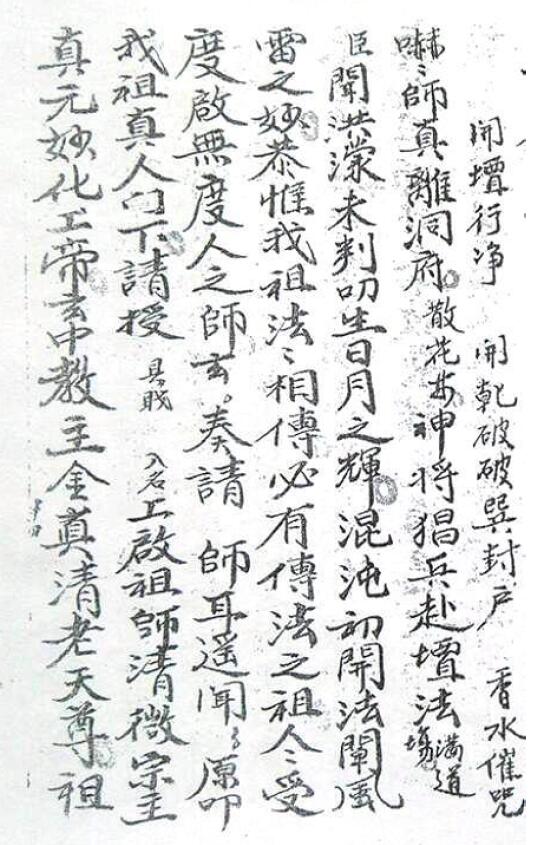 開壇行净 開乾破破巽封戶 香水催咒
嚇〻師真離洞府散花 神将猖兵赴壇法滿道場
臣聞洪濛未判叩生日月之輝混沌初開法闡風
雷之妙恭惟我祖法〻相傳必有傳法之祖人〻受
度啟無度人之師玄。奏請 師耳遥聞〻原叩
我祖真人 下請授 具職 入名 上啟祖師清微宗主
真元妙化上帝玄中教主金真清老天尊祖